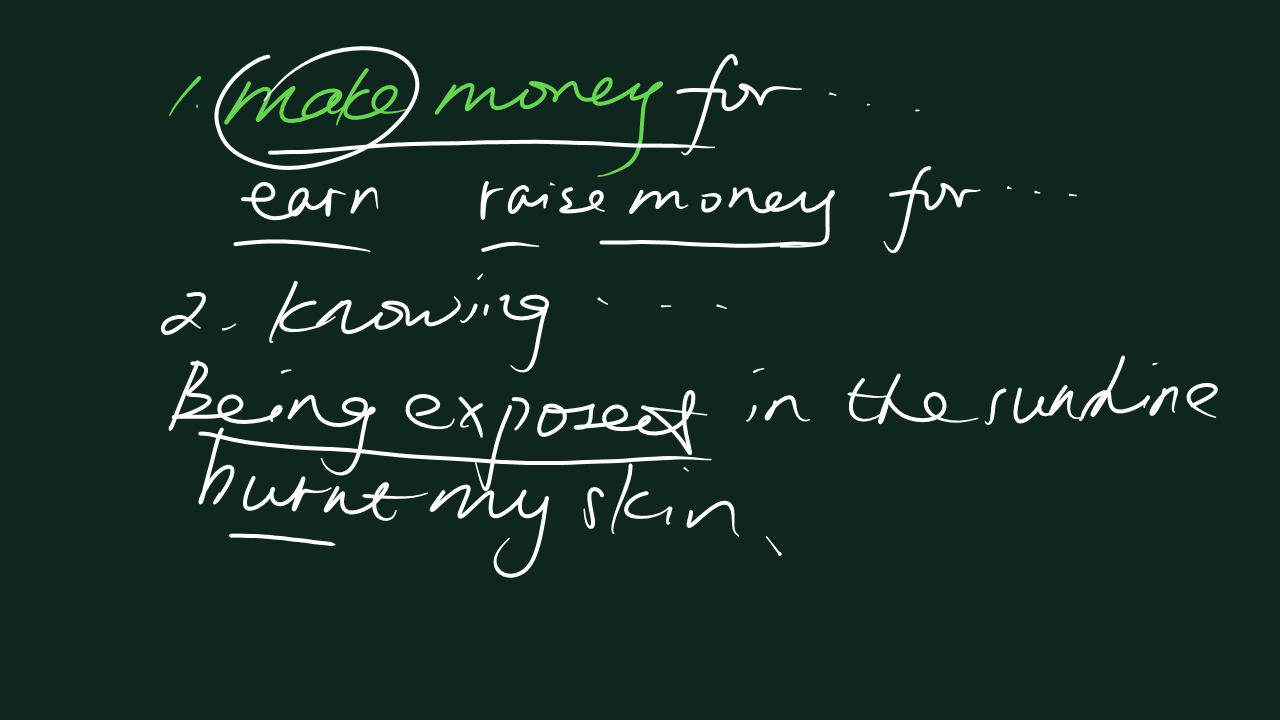 1. make money for ....
earn raise money for ...
2. Knowing ...
Being exposed in the sunshine
burnt my skin.